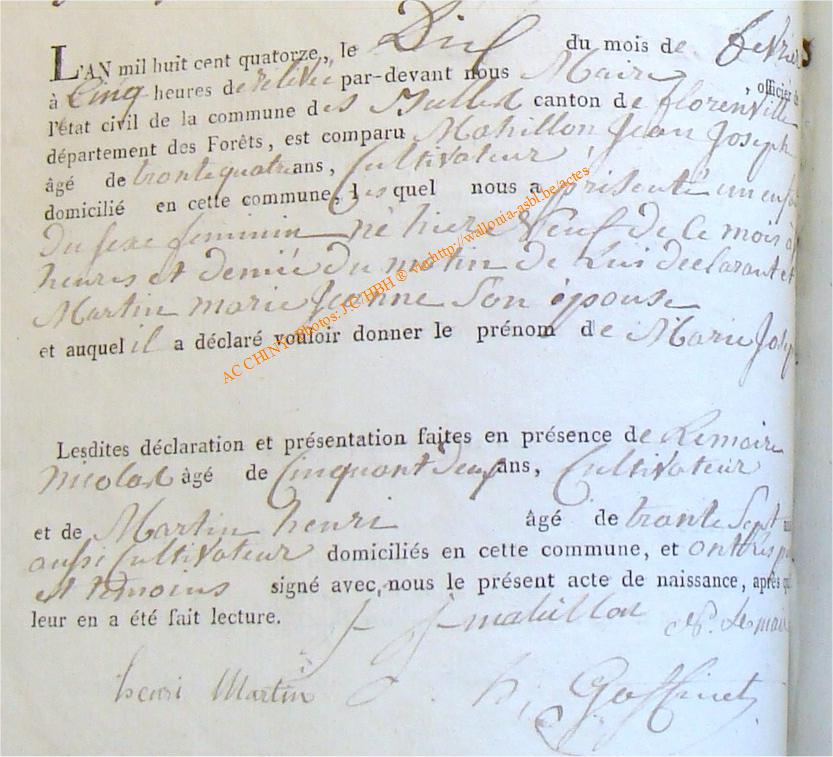 L'AN mil huit cent quatorze, le Dix du mois de fevrier
à Cinq heures de relevée par-devant nous Maire, officier de
l'état civil de la commune des Bulles canton de florenville
département des Forêts, est comparu Mahillon Jean Joseph
âgé de trantequatre ans, Cultivateur,
domicilié en cette commune, les quel nous a présenté un enfant
Du sexe feminin né hier Neuf de Ce mois à
heures et demie du matin de Lui declarant et
Martin marie Jeanne Son épouse
et auquel il a déclaré vouloir donner le prénom de Marie Josep
AC CHINY Photos: J.C HBH ® via http://wallonia-asbl.be/actes
Lesdites déclaration et présentation faites en présence de Lemaire
Nicolas âgé de Cinquant deux ans, Cultivateur
et de Martin henri âgé de trante Sept
aussi Cultivateur domiciliés en cette commune, et ont
et temoins signé avec nous le présent acte de naissance, après
leur en a été fait lecture.
J J mahillon N. Lemaire
henri Martin h, Goffinet